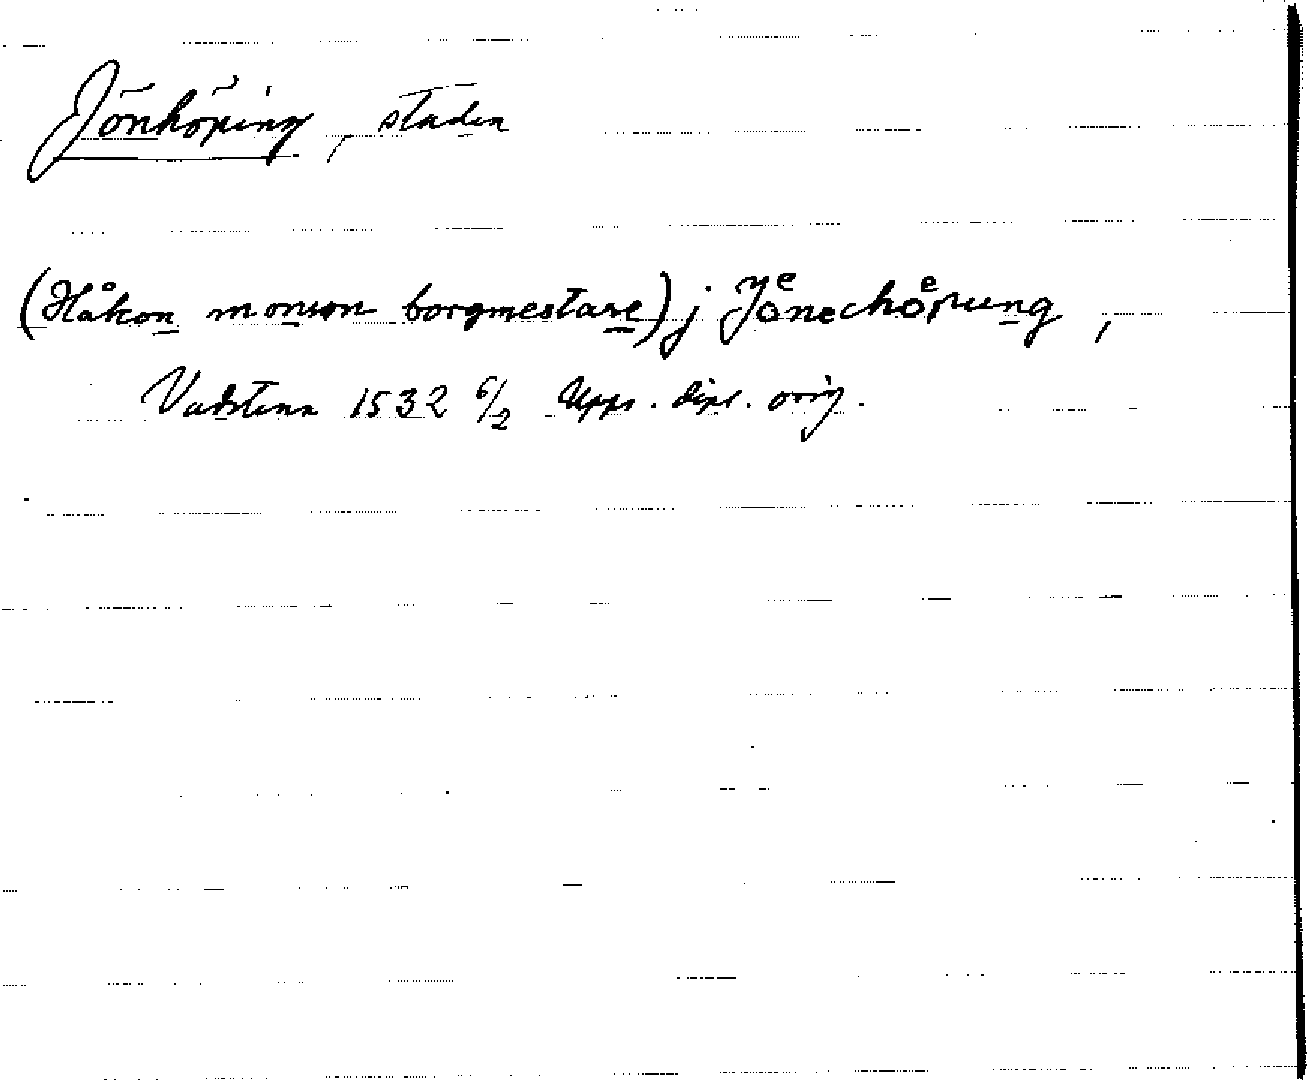 Jönköping, staden
(Håkon monson borgmestare) j Joͤnechoͤpung,
Vadstena 1532 6/2 Upps. dipl. orig.